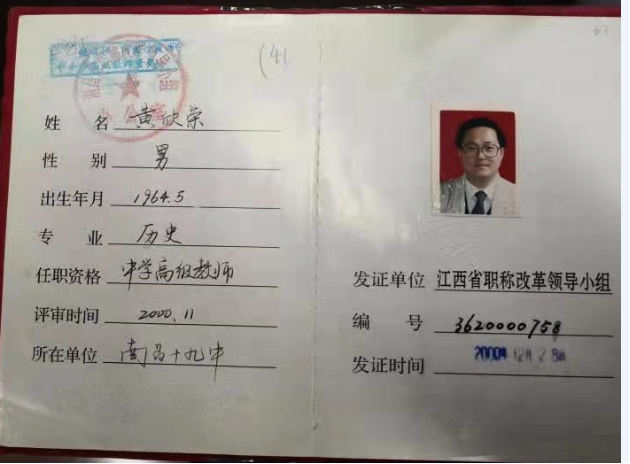 姓名 黄欣荣
性别 男
出生年月 1964.5
专业 历史
任职资格 中学高级教师
评审时间 2000.11
所在单位 南昌十九中
发证单位 江西省职称改革领导小组
编号 3620000758
发证时间 2000年12月28日